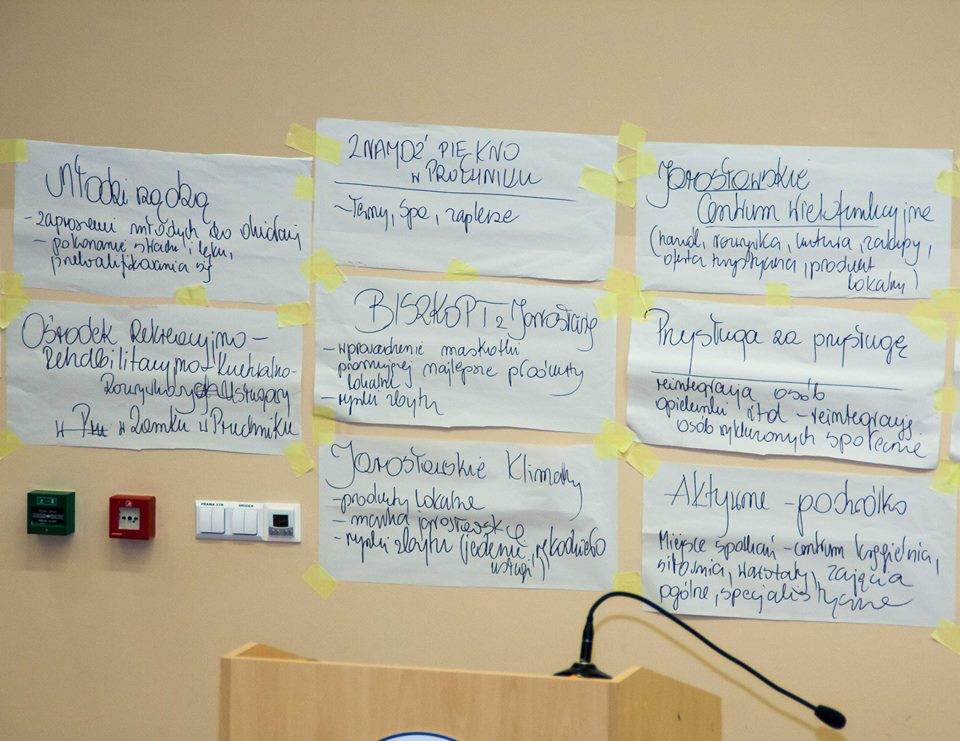 Młodzi rządzą
- zaproszeni młodych do
- pokonanie strachu i lęku,
przekwalifikowania się
Ośrodek Rekreacyjno-
Rehabilitacyjno-Kuchtalno-
w Zamku w Pruchniku
ZNAJDŹ PIĘKNO
w PRUCHNIKU
- Termy, Spa, zaplecze
BISZKOPT z Jarosławię
- wprowadzenie maskotki
promującej najlepsze produkty
lokalne
- rynki zbytu
Jarosławskie Klimaty
- produkty lokalne
- marka
- rynki zbytu (jedzenie, rękodzieło
usługi)
Jarosławskie
Centrum Wielofunkcyjne
(handl, rozrywka, kultura, zakupy,
oferta turystyczna, produkt
lokalny)
Przysługa za przysługę
reintegracja osób
opiekunki itd - reintegracja
osób wykluczonych społecznie
Aktywne - pochółko
Miejsce spotkań - centrum kręgielnia,
siłownia, warsztaty, zajęcia
ogólne, specjalistyczne